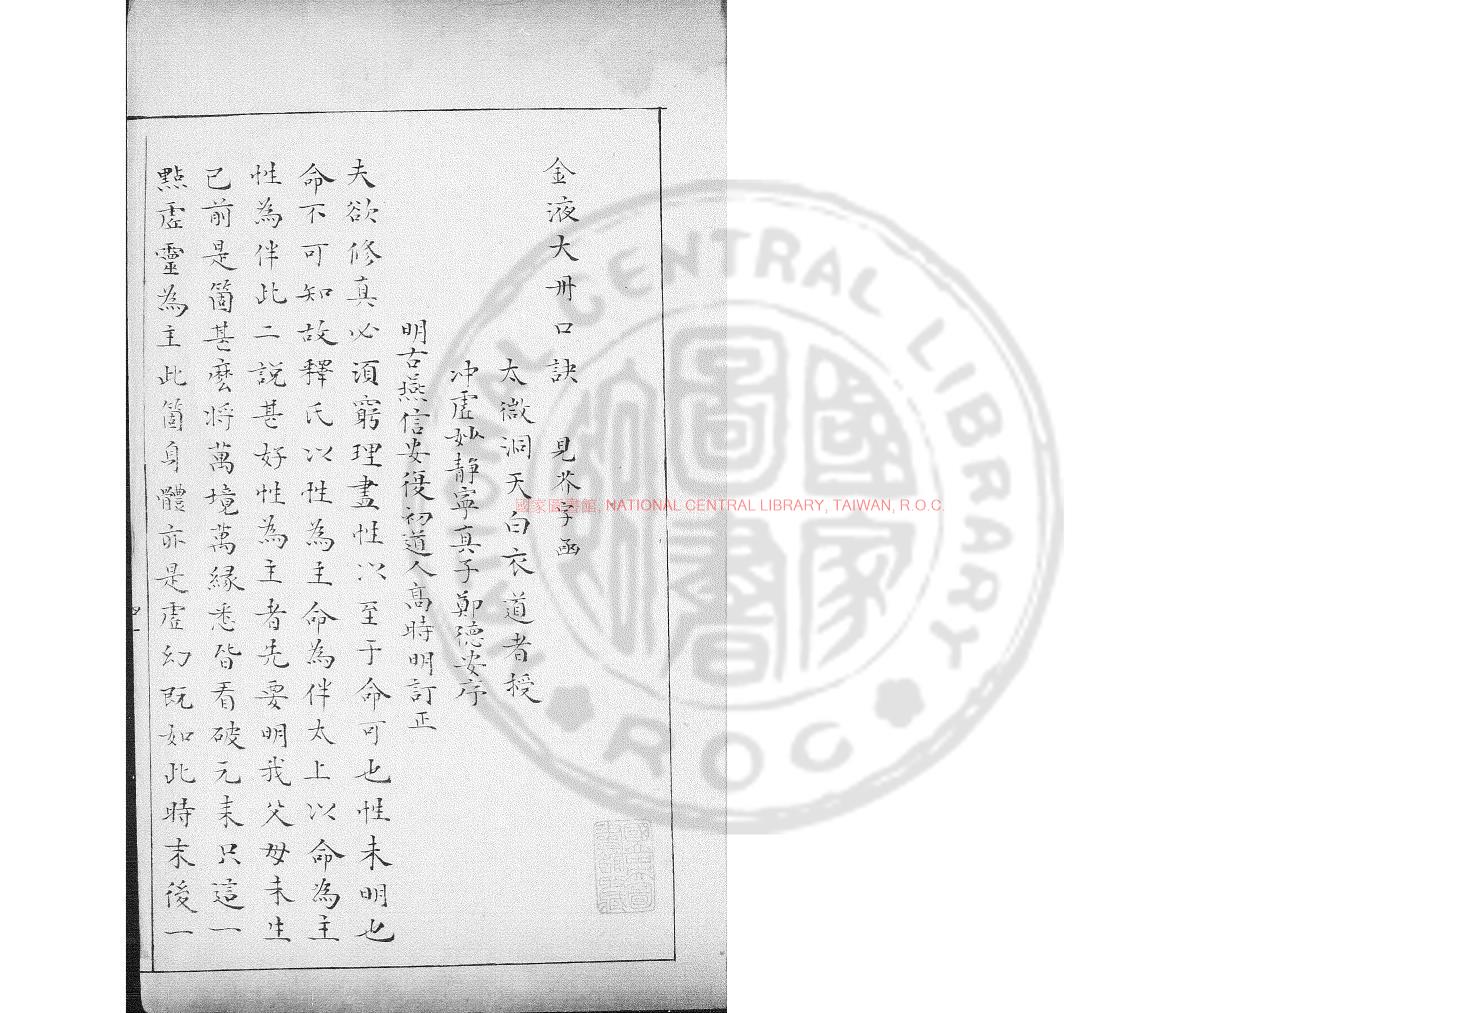 金液大丹口訣　見芥子函
太微洞天白衣道者授
冲虛妙靜寧真子鄭德安序
明古燕信安復初道人高時明訂正
夫欲修真必須窮理盡性以至于命可也性未明也
命不可知故釋氏以性為主命為伴太上以命為主
性為伴此二說甚好性為主者先要明我父母未生
已前是箇甚麼將萬境萬緣悉皆看破元來只這一
點虛靈為主此箇身體亦是虛幻既如此時末後一
國家圖書館, NATIONAL CENTRAL LIBRARY, TAIWAN, R.O.C.
NATIONAL CENTRAL LIBRARY
ROC
國家圖書館